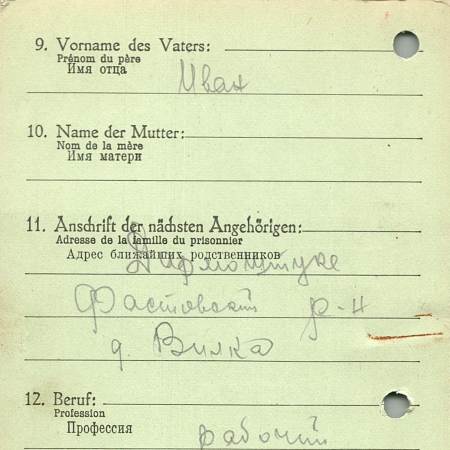 9. Vorname des Vaters:
Prénom du père
Имя отца
Иван
10. Name der Mutter:
Nom de la mère
Имя матери
11. Anschrift der nächsten Angehörigen:
Adresse de la famille du prisonnier
Адрес ближайших родственников
Фастовский р-н
д. Вилка
12. Beruf:
Profession
Профессия
рабочий